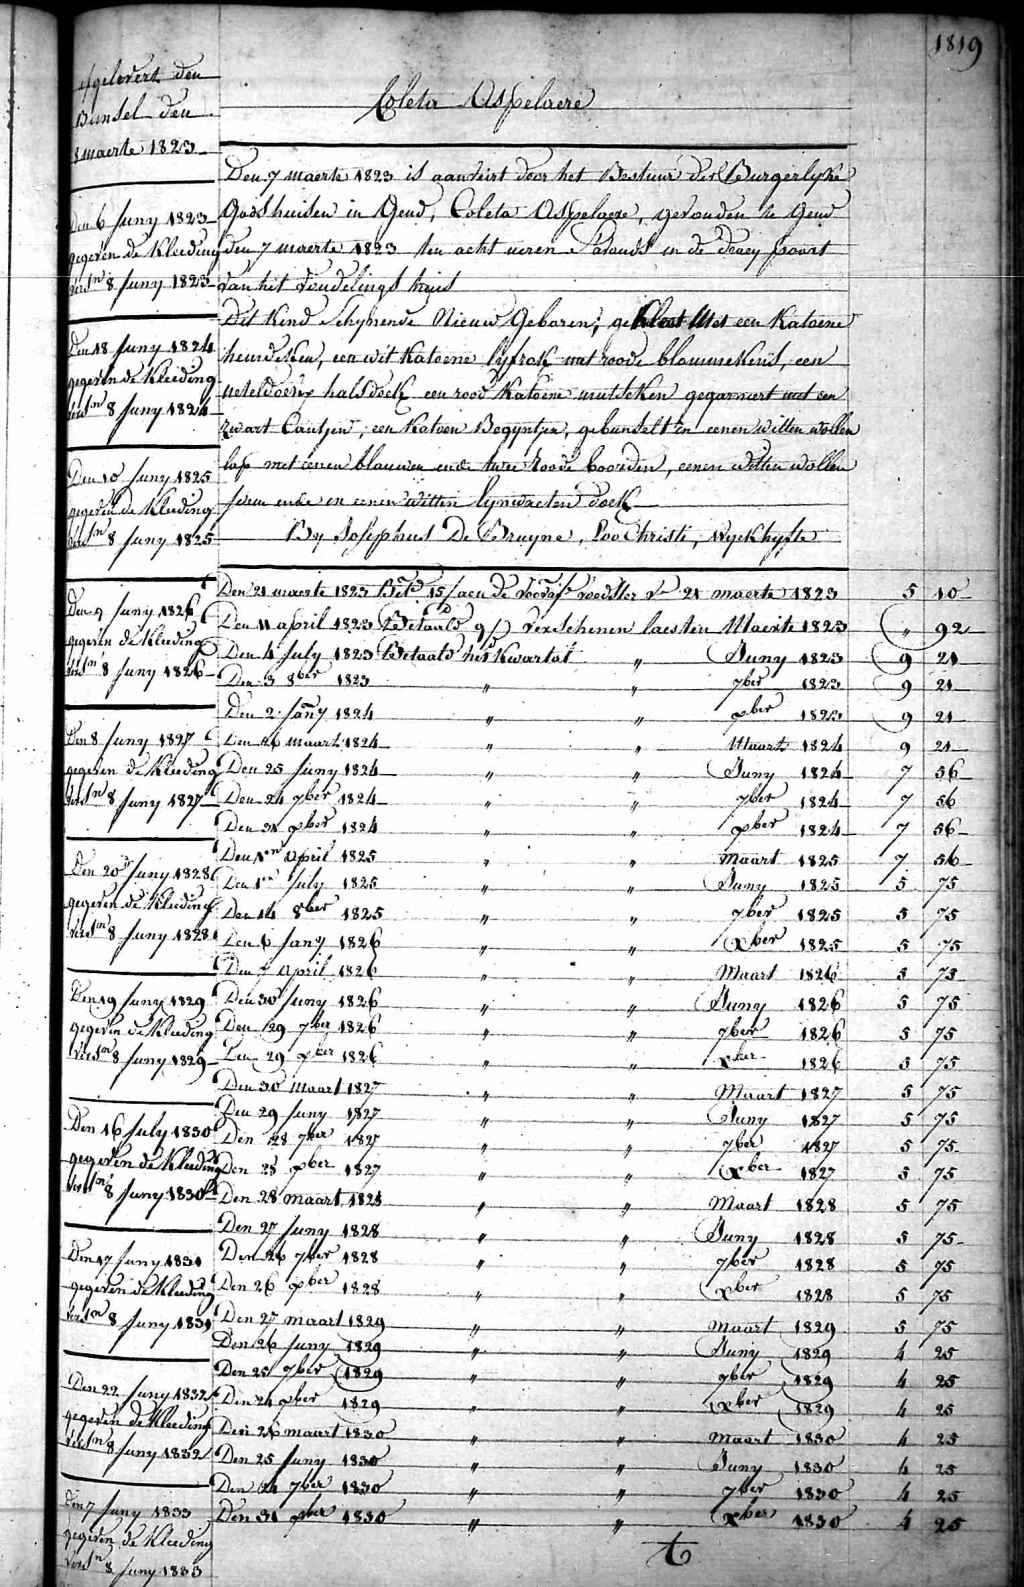 1819
afgelevert den
Bunsel den
8 maerte 1823
Den 6 Juny 1823
gegeven de Kleeding
vers^n 8 Juny 1823
Den 18 Juny 1824
gegeven de Kleeding
vers^n 8 Juny 1824
Den 10 Juny 1825
gegeven de Kleeding
vers^n 8 Juny 1825
Den 9 Juny 1826
gegeven de Kleeding
vers^n 8 Juny 1826
Den 8 Juny 1827
gegeven de Kleeding
vers^n 8 Juny 1827
Den 20 Juny 1828
gegeven de Kleeding
vers^n 8 Juny 1828
Den 19 Juny 1829
gegeven de Kleeding
vers^n 8 Juny 1829
Den 16 July 1830
gegeven de Kleeding
vers^n 8 Juny 1830
Den 17 Juny 1831
gegeven de Kleeding
vers^n 8 Juny 1831
Den 22 Juny 1832
gegeven de Kleeding
vers^n 8 Juny 1832
Den 7 Juny 1833
gegeven de Kleeding
vers^n 8 Juny 1833
Coleta Aspelaere
Den 7 maerte 1823 is aanveirt door het Bestuur der Burgerlyke
Godshuisen in Gend, Coleta Aspelaere, gevonden te Gend
den 7 maerte 1823 ten acht uren s'avonds in de draey poort
van hit vondelings huis
Dit Kind Schynende Nieuw Geboren, gekleet Met een Katoene
hemdeken, een wit katoene lyfrok met roode blommekens, een
neteldoekx halsdoek een rood Katoene mutseken gegarneert met een
zwart Cantjen, een Katoen Begyntjen, gebunselt in eenen witten wollen
lap met eenen blauwen ende twee roode boorden, eenen witten wollen
ende en eenen witten lynwaeten doek
By Josephus De Bruyne, Loo Christi, Ryckhyste
Den 21 maerte 1823 Bet^t 15 f aen de voedster 21 maerte 1823 5 10
Den 11 April 1823 Betaald verschenen laesten Maerte 1823 " 92
Den 4 July 1823 Betaald het Kwartal " Juny 1823 9 21
Den 3 8ber 1823 " " 7ber 1823 9 21
Den 2 Jany 1824 " " xber 1823 9 21
Den 26 maart 1824 " " Maart 1824 9 21
Den 25 Juny 1824 " " Juny 1824 7 56
Den 24 7ber 1824 " " 7ber 1824 7 56
Den 31 xber 1824 " " xber 1824 7 56
Den 1en April 1825 " " Maart 1825 7 56
Den 1en July 1825 " " Juny 1825 5 75
Den 14 8ber 1825 " " 7ber 1825 5 75
Den 6 Jany 1826 " " xber 1825 5 75
Den 7 April 1826 " " Maart 1826 5 75
Den 30 Juny 1826 " " Juny 1826 5 75
Den 29 7ber 1826 " " 7ber 1826 5 75
Den 29 xber 1826 " " xber 1826 5 75
Den 30 Maart 1827 " " Maart 1827 5 75
Den 29 Juny 1827 " " Juny 1827 5 75
Den 28 7ber 1827 " " 7ber 1827 5 75
Den 28 xber 1827 " " xber 1827 5 75
Den 28 maart 1828 " " Maart 1828 5 75
Den 27 Juny 1828 " " Juny 1828 5 75
Den 26 7ber 1828 " " 7ber 1828 5 75
Den 26 xber 1828 " " xber 1828 5 75
Den 27 maart 1829 " " Maart 1829 5 75
Den 26 Juny 1829 " " Juny 1829 4 25
Den 25 7ber 1829 " " 7ber 1829 4 25
Den 24 xber 1829 " " xber 1829 4 25
Den 26 maart 1830 " " Maart 1830 4 25
Den 25 Juny 1830 " " Juny 1830 4 25
Den 24 7ber 1830 " " 7ber 1830 4 25
Den 31 xber 1830 " " xber 1830 4 25